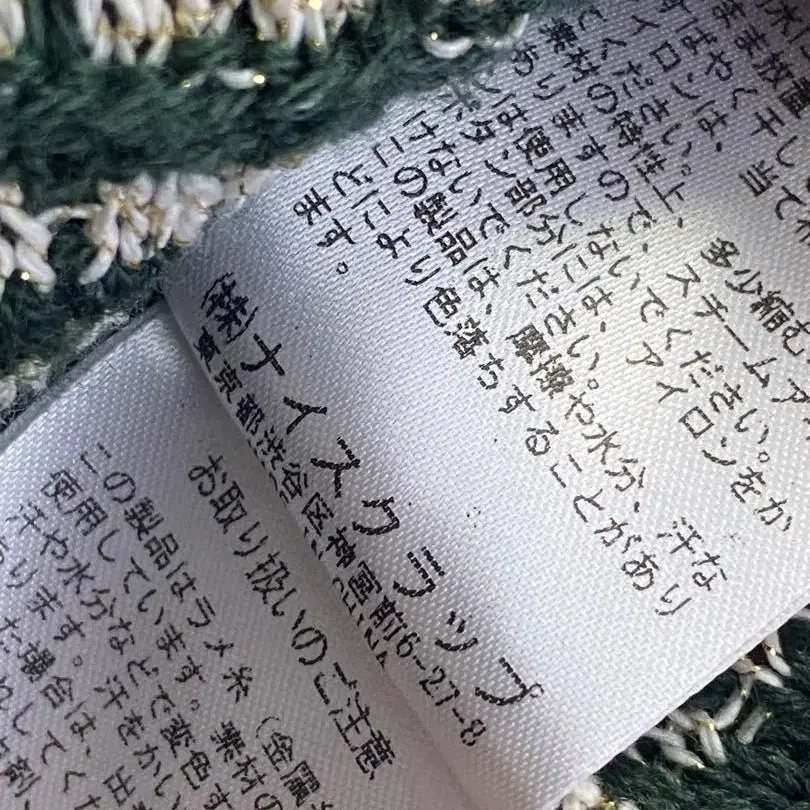 まま放置
すばやく干し
アイロンは、当て
てください。
素材の特性上、多少縮む
ありますので、スチームア
ンは使用しないでください。
ボタン部分には、アイロンをか
けないでください。
の製品は、摩擦や水分、汗な
どにより色落ちすることがあり
ます。
(株)ナイスクラップ
東京都渋谷区神宮前6-27-8
お取り扱いのご注意
この製品はラメ糸（金属
使用しています。素材の
汗や水分などで変色す
あります。汗をかい
た場合は、出
してくだ
剤、